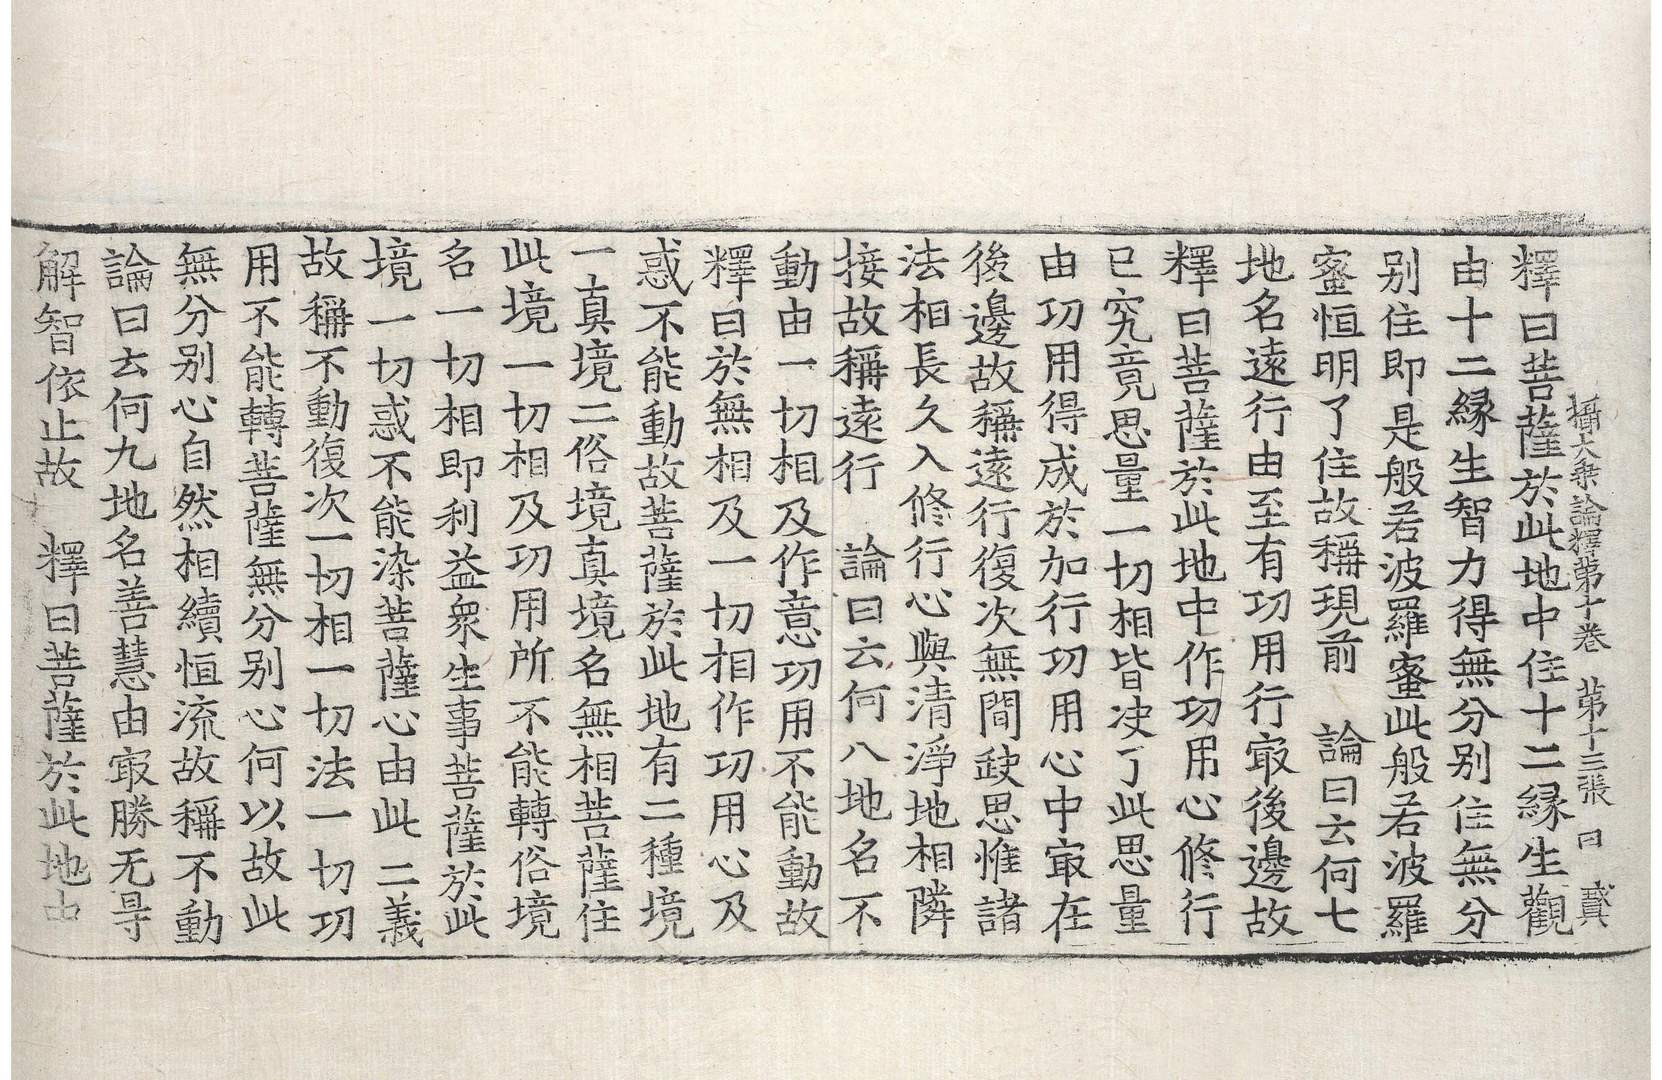 攝大乘論釋第十卷　第十三張　曰
釋曰菩薩於此地中住十二緣生觀
由十二緣生智力得無分別住無分
別住即是般若波羅蜜此般若波羅
蜜恒明了住故稱現前　論曰云何七
地名遠行由至有功用行㝡後邊故
釋曰菩薩於此地中作功用心修行
已究竟思量一切相皆决了此思量
由功用得成於加行功用心中㝡在
後邊故稱遠行復次無間𡙇思惟諸
法相長久入修行心與清淨地相隣
接故稱遠行　論曰云何八地名不
動由一切相及作意功用不能動故
釋曰於無相及一切相作功用心及
惑不能動故菩薩於此地有二種境
一真境二俗境真境名無相菩薩住
此境一切相及功用所不能轉俗境
名一切相即利益衆生事菩薩於此
境一切惑不能染菩薩心由此二義
故稱不動復次一切相一切法一切功
用不能轉菩薩無分別心何以故此
無分別心自然相續恒流故稱不動
論曰云何九地名善慧由㝡勝无㝵
解智依止故　釋曰菩薩於此地中